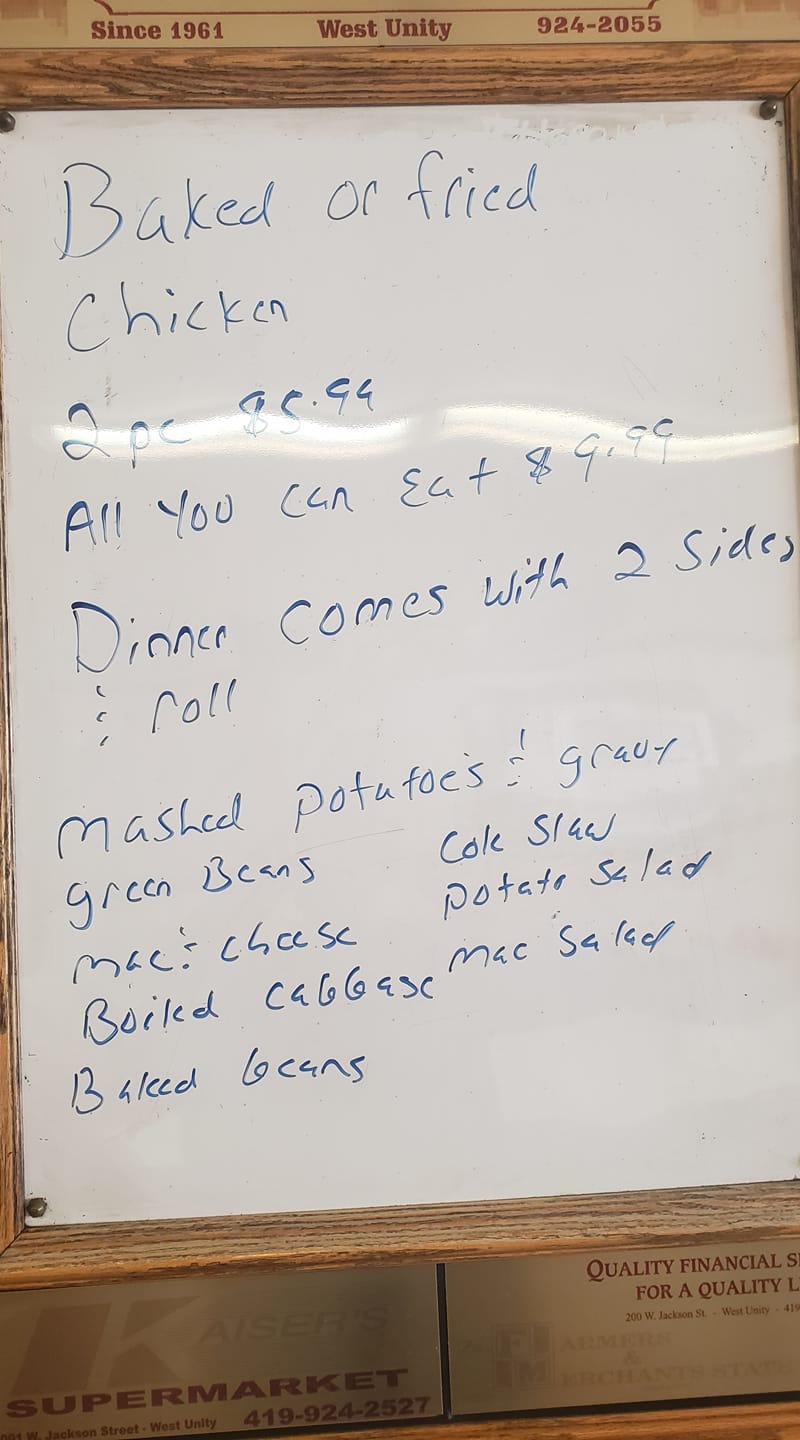 Since 1961 West Unity 924-2055
Baked or fried
Chicken
2 pc $5.99
All You can Eat $9.99
Dinner comes with 2 Sides
& roll
mashed potatoe's & gravy
green Beans
Cole Slaw
mac & cheese
potato Salad
Boiled cabbage
mac Salad
Baked beans
QUALITY FINANCIAL
FOR A QUALITY
200 W. Jackson St. - West Unity - 419
KAISER'S
SUPERMARKET
W. Jackson Street - West Unity 419-924-2527
FARMERS
&
MERCHANTS STATE